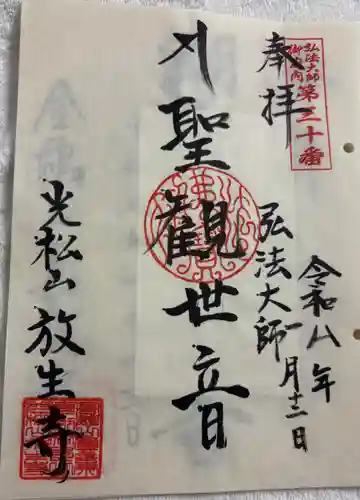 弘法大師
御府内
第三十番
奉拝
弘法大師
令和八年
一月十二日
聖観世音
光松山 放生寺